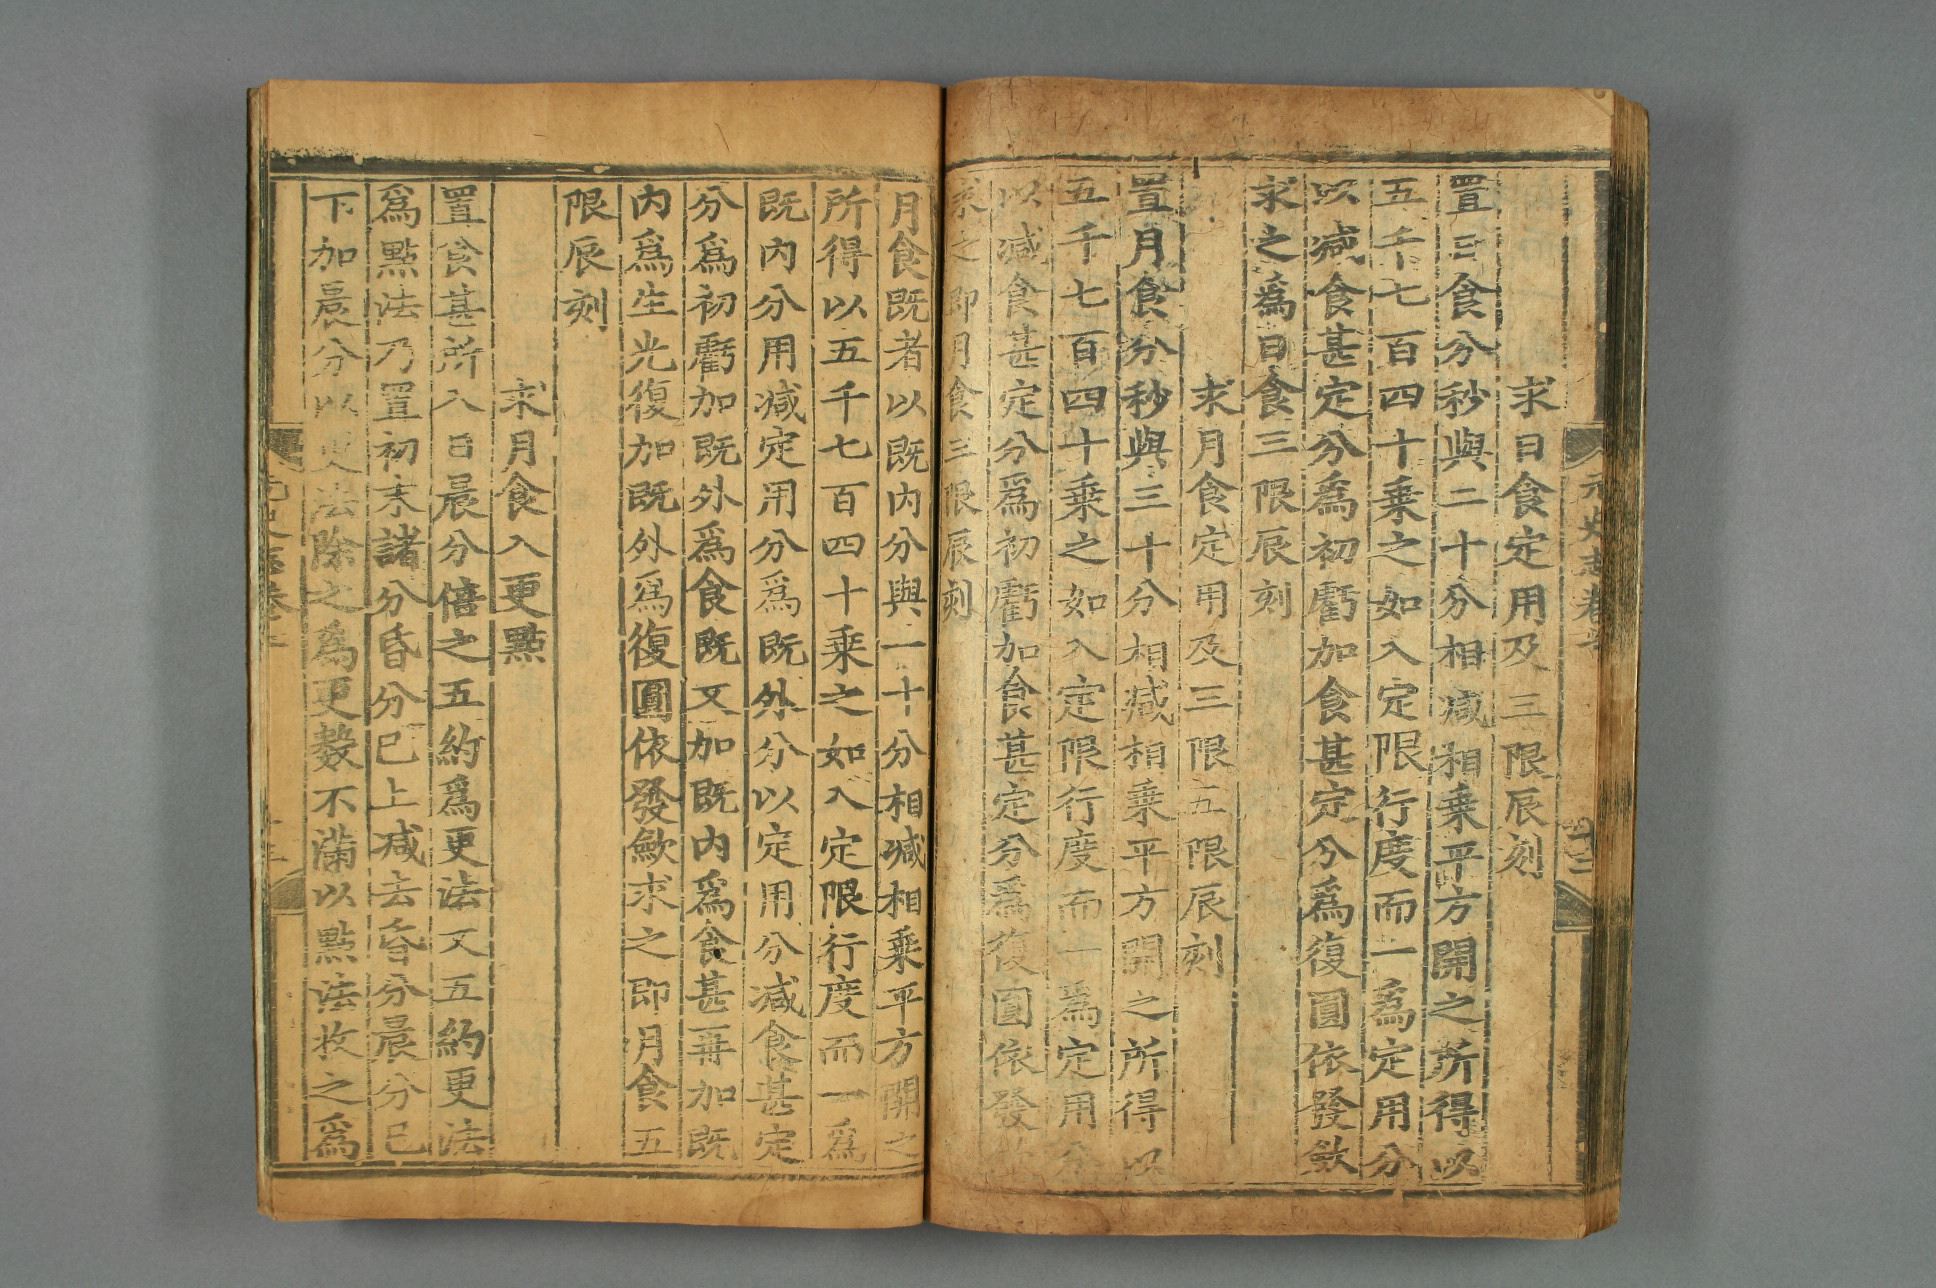 求日食定用及三限辰刻
置日食分秒與二十分相減相乘平方開之所得以
五千七百四十乘之如入定限行度而一爲定用分
以減食甚定分爲初虧加食甚定分爲復圓依發斂
求之爲日食三限辰刻
求月食定用及三限五限辰刻
置月食分秒與三十分相減相乘平方開之所得以
五千七百四十乘之如入定限行度而一爲定用分
以減食甚定分爲初虧加食甚定分爲復圓依發
求之即月食三限辰刻
月食既者以既內分與一十分相減相乘平方開之
所得以五千七百四十乘之如入定限行度而一爲
既內分用減定用分爲既外分以定用分減食甚定
分爲初虧加既外爲食既又加既內爲食甚再加既
內爲生光復加既外爲復圓依發斂求之即月食五
限辰刻
求月食入更點
置食甚所入日晨分倍之五約爲更法又五約更法
爲點法乃置初末諸分昏分已上減去昏分晨分已
下加晨分以更法除之爲更數不滿以點法收之爲
元史志卷
十三